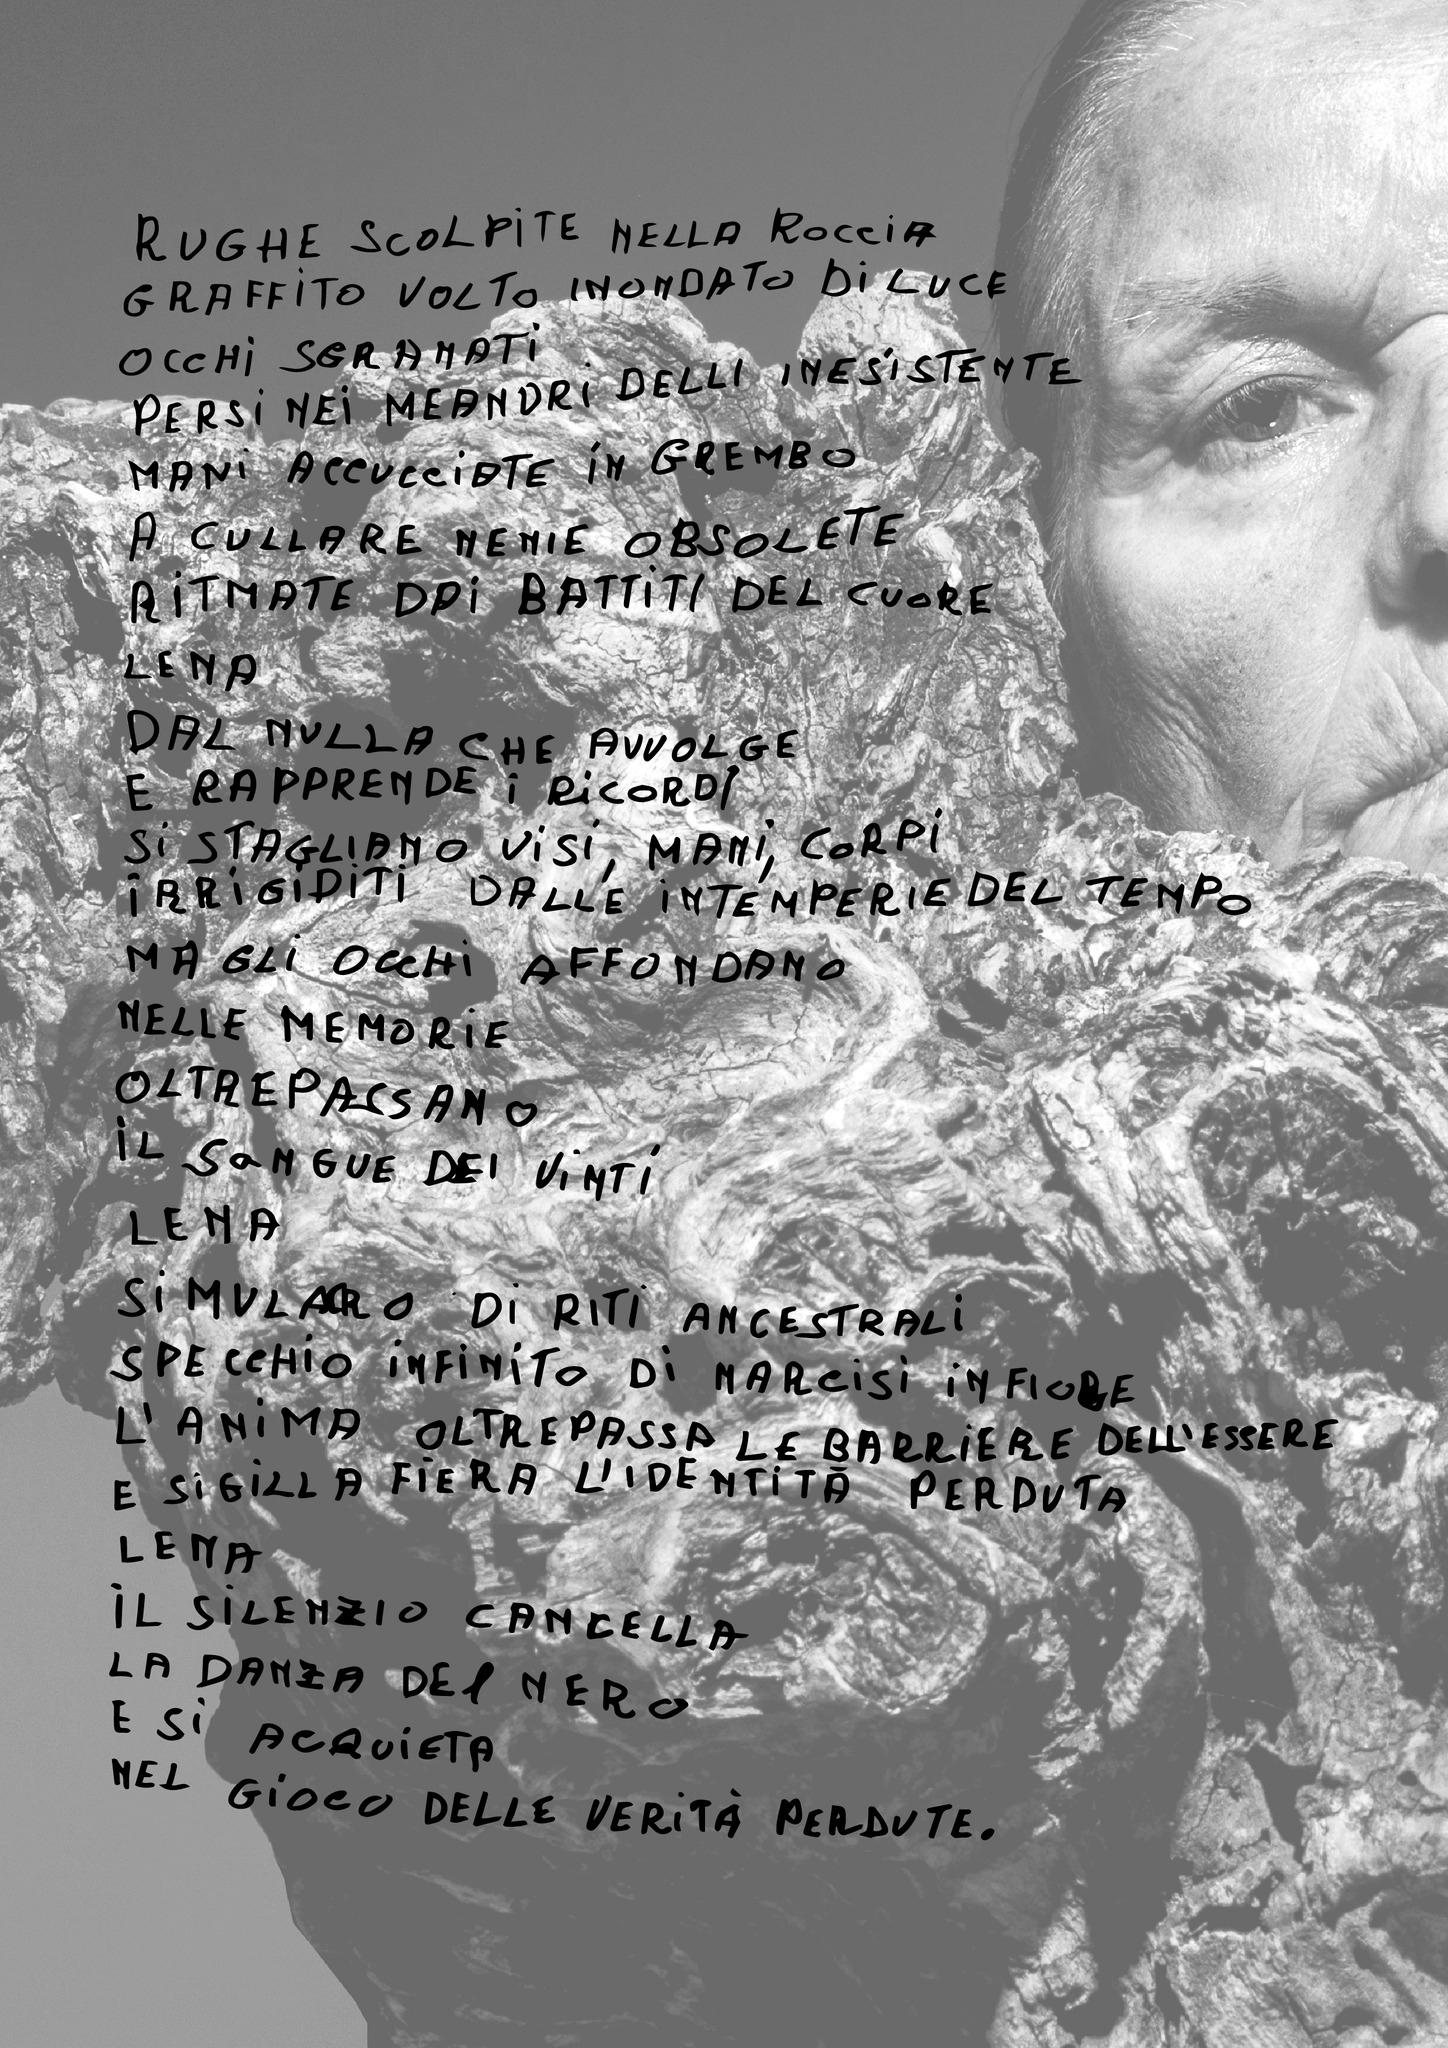 RUGHE SCOLPITE NELLA ROCCIA
GRAFFITO VOLTO INONDATO DI LUCE
OCCHI SGRANATI
PERSI NEI MEANDRI DELLI INESISTENTE
MANI ACCUCCIATE IN GREMBO
A CULLARE NENIE OBSOLETE
RITMATE DAI BATTITI DEL CUORE
LENA
DAL NULLA CHE AVVOLGE
E RAPPRENDE I RICORDI
SI STAGLIANO VISI, MANI, CORPI
IRRIGIDITI DALLE INTEMPERIE DEL TEMPO
MA GLI OCCHI AFFONDANO
NELLE MEMORIE
OLTREPASSANO
IL SANGUE DEI VINTI
LENA
SIMULACRO DI RITI ANCESTRALI
SPECCHIO INFINITO DI NARCISI IN FIORE
L'ANIMA OLTREPASSA LE BARRIERE DELL'ESSERE
E SIGILLA FIERA L'IDENTITÀ PERDUTA
LENA
IL SILENZIO CANCELLA
LA DANZA DEL NERO
E SI ACQUIETA
NEL GIOCO DELLE VERITÀ PERDUTE.